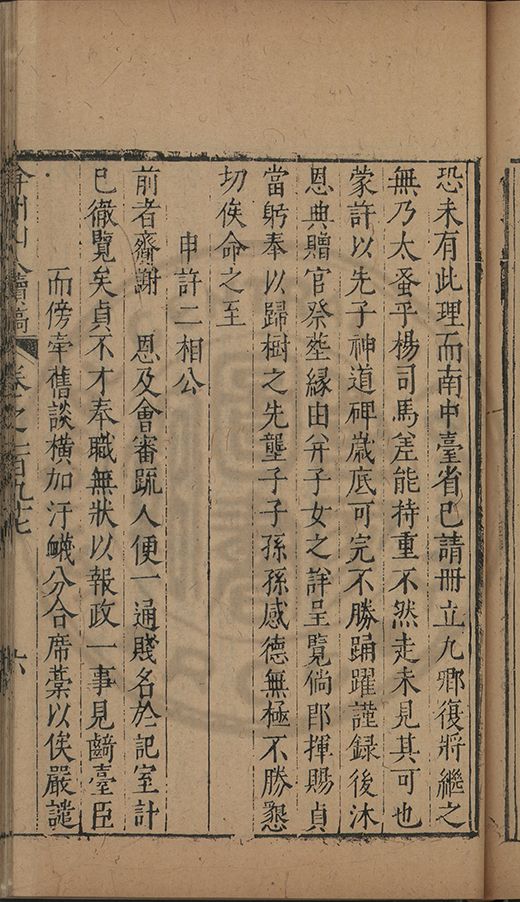 恐未有此理而南中臺省已請冊立九卿復將繼之
無乃太蚤乎楊司馬差能持重不然走未見其可也
蒙許以先子神道碑歲底可完不勝踊躍謹録後沐
恩典贈官祭塟縁由并子女之詳呈覽倘卽揮賜貞
當躬奉以歸樹之先壟子子孫孫感德無極不勝懇
切俟命之至
申許二相公
前者齋謝 恩及會審䟽人便一通賤名於記室計
已徹覽矣貞不才奉職無狀以報政一事見齮臺臣
而傍牽舊談橫加汙衊分合席藁以俟嚴譴
弇州山人續稿 卷之一百九十七 六